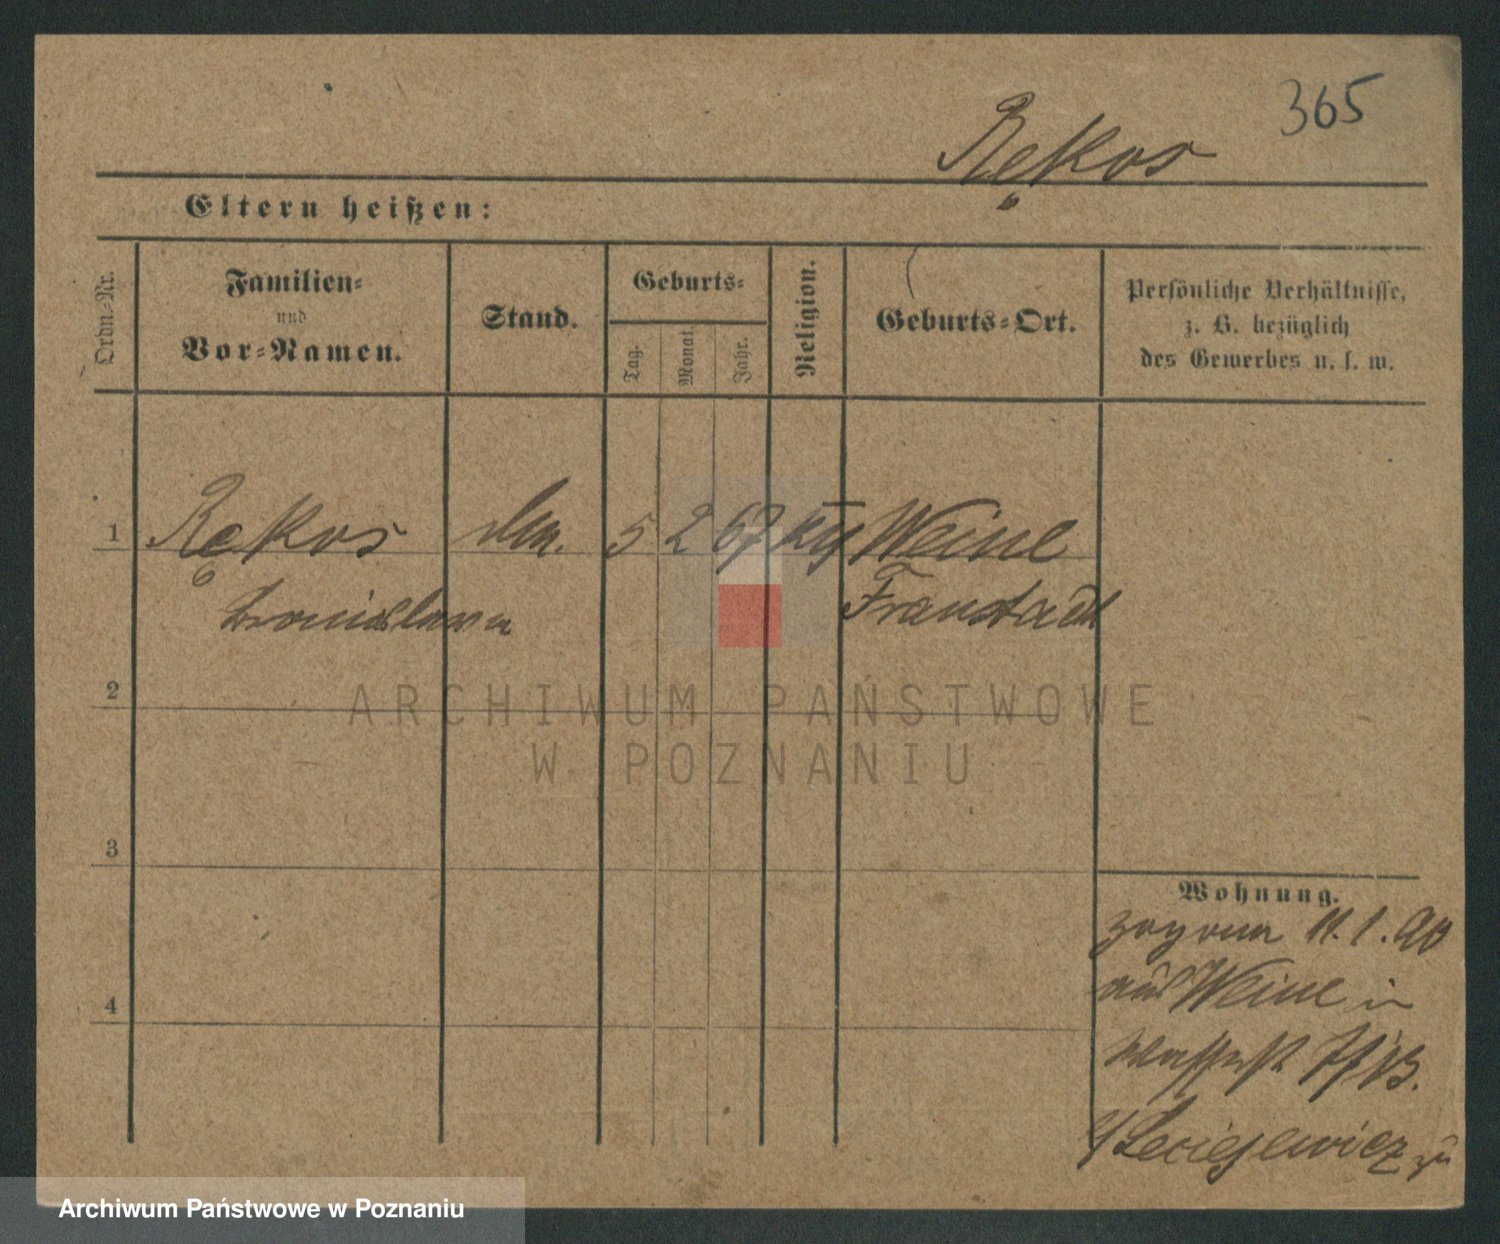 365
Rękos
Eltern heißen:
Ordn.-Nr.
Familien-
und
Vor-Namen.
Stand.
Geburts-
Tag.
Monat.
Jahr.
Religion.
Geburts-Ort.
Persönliche Verhältnisse,
z. B. bezüglich
des Gewerbes u. s. w.
1 Rękos 5 2 67 Weine
Bronislawa Fraustadt
2
ARCHIWUM PAŃSTWOWE
W POZNANIU
3
4
Wohnung.
zog am 11. 1. 90
aus Weine in
Archiwum Państwowe w Poznaniu